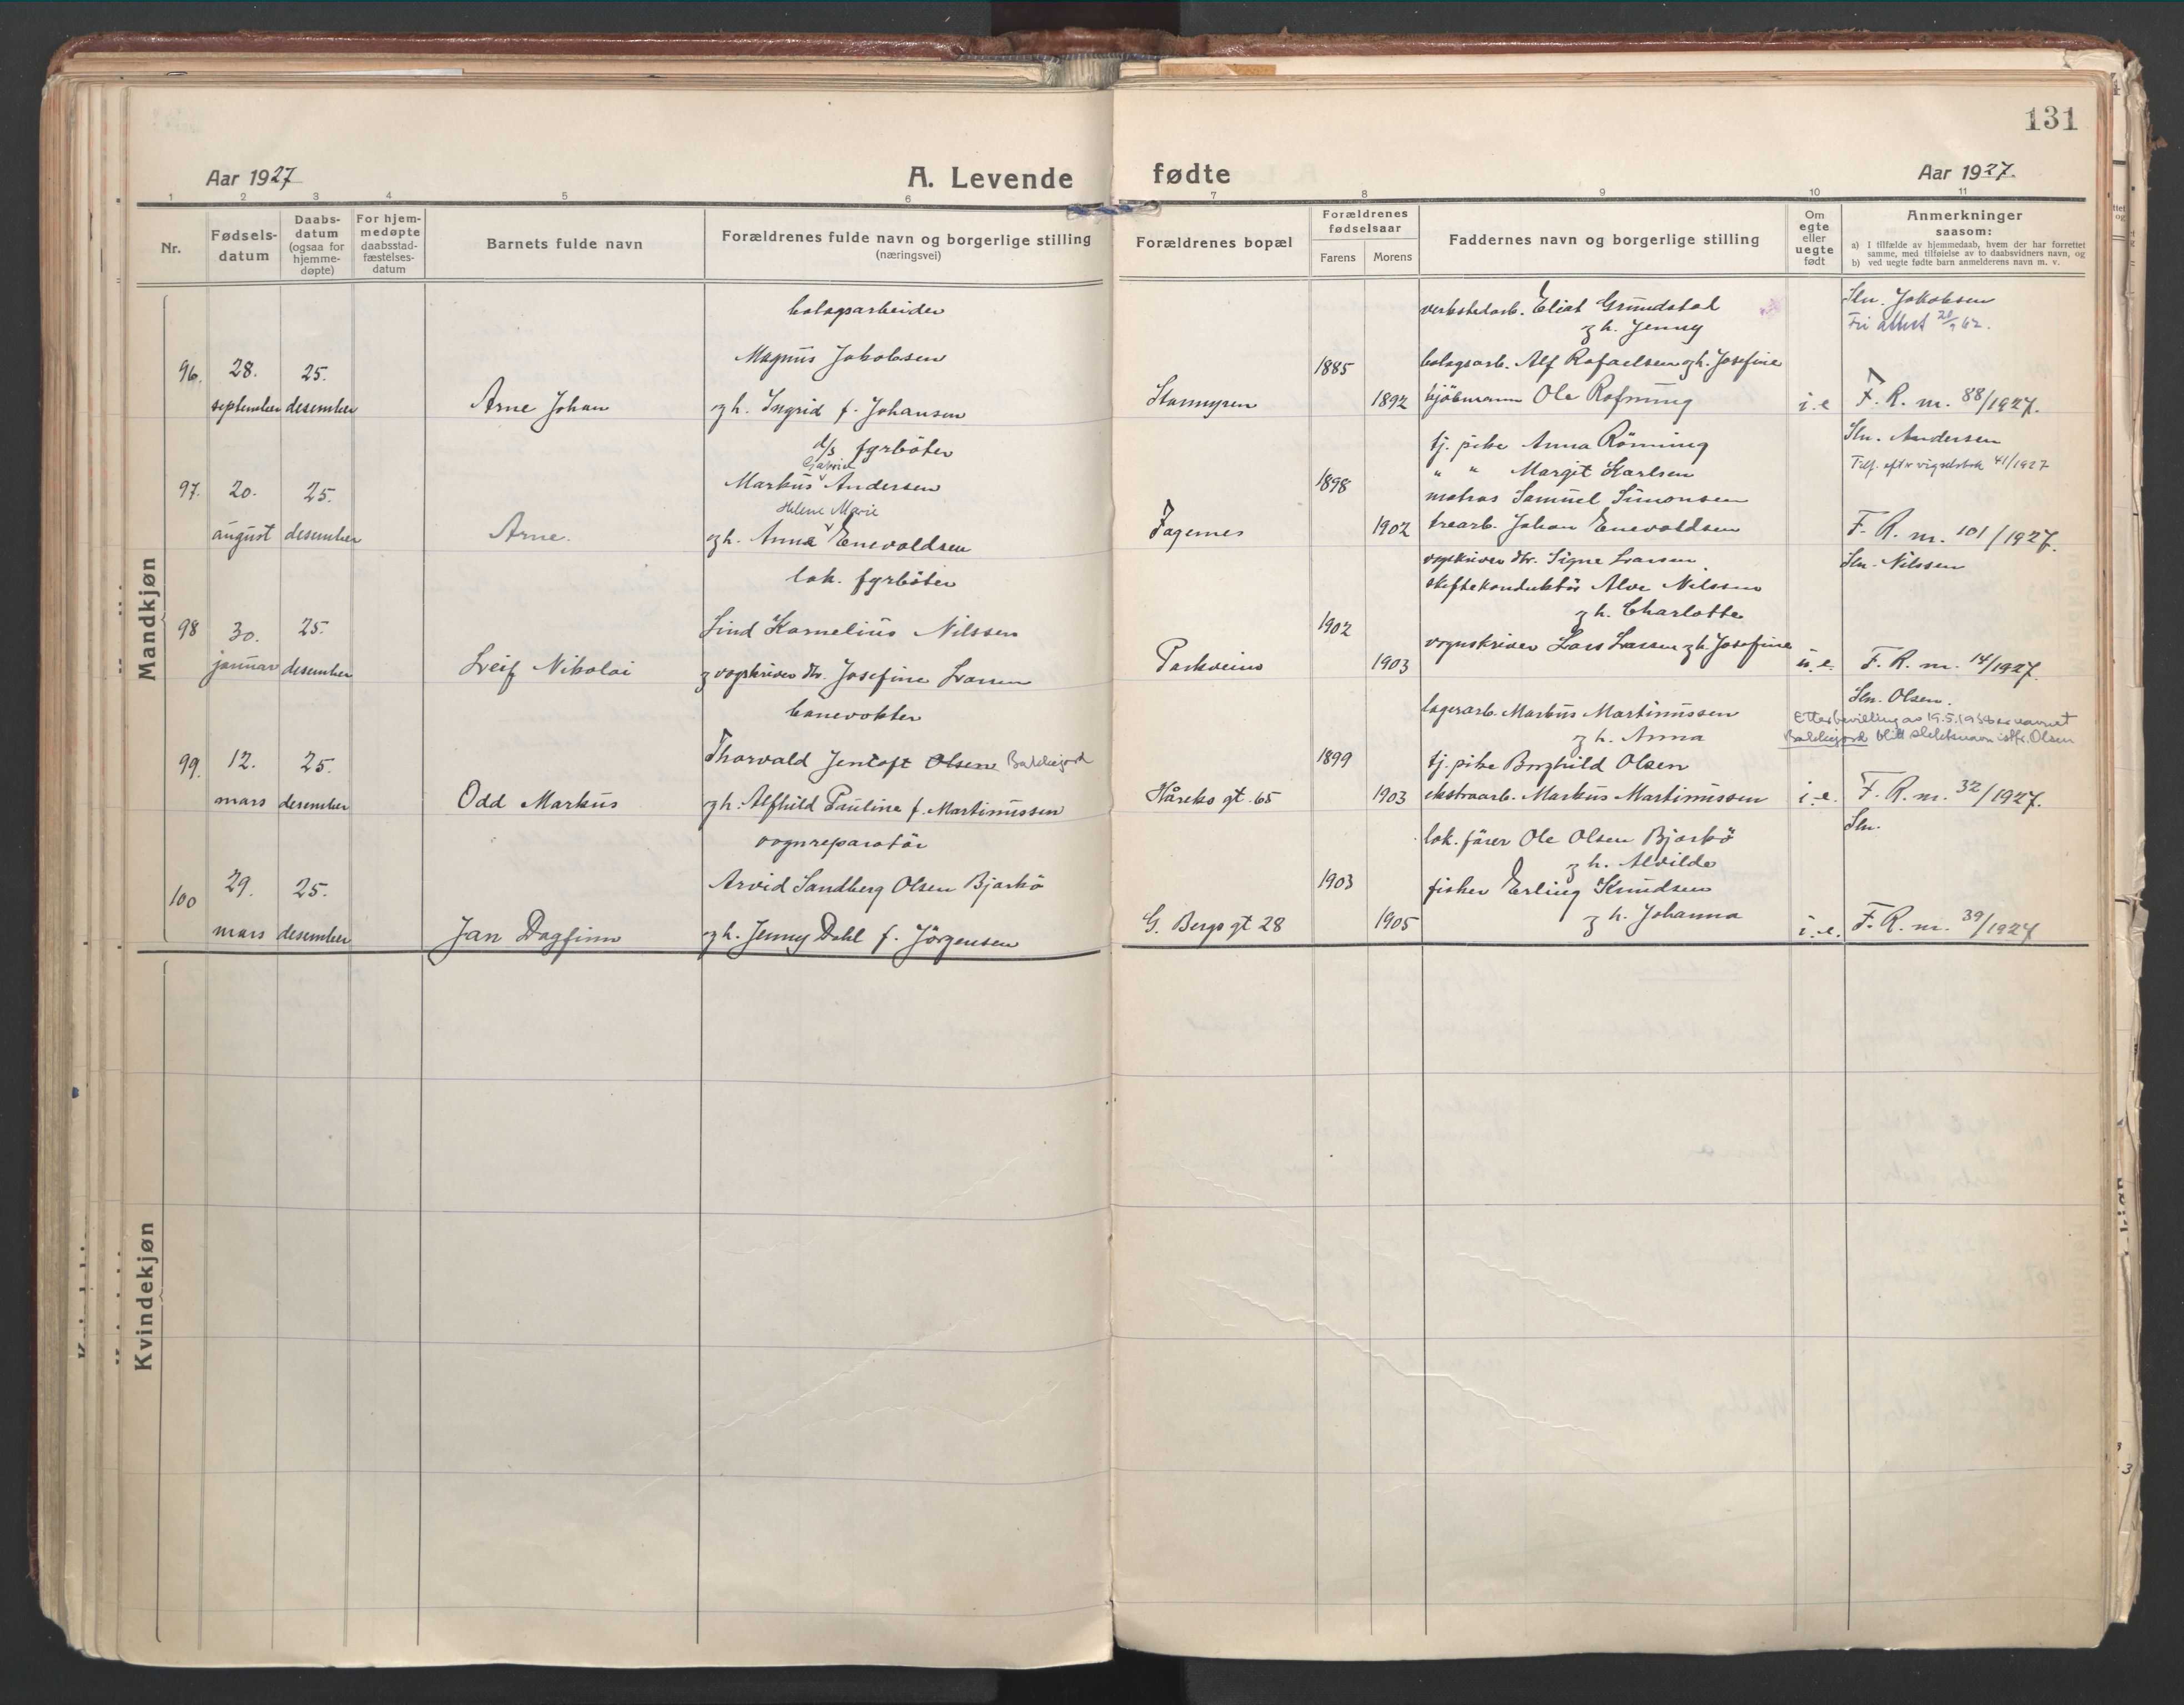 131
Aar 1927 A. Levende fødte Aar 1927.
1 2 3 4 5 6 7 8 9 10 11
Nr.
Fødsels-
datum
Daabs-
datum
(ogsaa for
hjemme-
døpte)
For hjem-
medøpte
daabsstad-
fæstelses-
datum
Barnets fulde navn
Forældrenes fulde navn og borgerlige stilling
(næringsvei)
Forældrenes bopæl
Forældrenes
fødselsaar
Farens Morens
Faddernes navn og borgerlige stilling
Om
egte
eller
uegte
født
Anmerkninger
saasom:
a) I tilfælde av hjemmedaab, hvem der har forrettet
samme, med tilføielse av to daabsvidners navn, og
b) ved uegte fødte barn anmelderens navn m. v.
Mandkjøn
96. 28. september
25. desember
Arne Johan
bolagsarbeider
Magnus Jakobsen
og h. Ingrid f. Johansen
1885
1892
verkstedarb. Eliat Grundstad
og h. Jenny
bolagsarb. Alf Rafaelsen og h. Josefine
kjöbmann Ole Rofnung
i.e
Sln. Jakobsen
Fri attest
F. R. nr. 88/1927.
97. 20. august
25. desember
Arne.
d/s fyrböter
Gabriel
Markus Andersen
Helene Marie
og h. Anna Enevoldsen
Fagernes
1898
1902
tj. pike Anna Rönning
" " Margit Karlsen
matros Samuel Simonsen
trearb. Johan Enevoldsen
Sln. Andersen
Tilf. eft. vigselsbok 41/1927
F. R. nr. 101/1927.
98 30. januar
25. desember
Leif Nikolai
lok. fyrböter
Lind Kornelius Nilssen
og vognskriver dtr. Josefine Larsen
Parkveien
1902
1903
vognskriver dtr. Signe Larsen
skiftekonduktör Alve Nilssen
og h. Charlotte
vognskriver Lars Larsen og h. Josefine
u.e.
Sln. Nilssen
F. R. nr. 14/1927.
99. 12. mars
25. desember
Odd Markus
banevokter
Thorvald Jentoft Olsen Bakkejord
og h. Alfhild Pauline f. Martinussen
Håreks gt. 65
1899
1903
lagerarb. Markus Martinussen
og h. Anna
tj. pike Borghild Olsen
ekstraarb. Markus Martinussen
i.e.
Sln. Olsen.
Etter bevilling av 19.5.1938 er navnet
Bakkejord blitt slektsnavn istf. Olsen
F. R. nr. 32/1927.
100 29. mars
25. desember
Jan Dagfinn
vognreparatör
Arvid Sandberg Olsen Bjarkö
og h. Jenny Dahl f. Jörgensen
G. Bergs gt 28
1903
1905
lok. förer Ole Olsen Bjarkö
og h. Alvilde
fisker Erling Knudsen
og h. Johanna
i.e.
Sln.
F. R. nr. 39/1927
Kvindekjøn